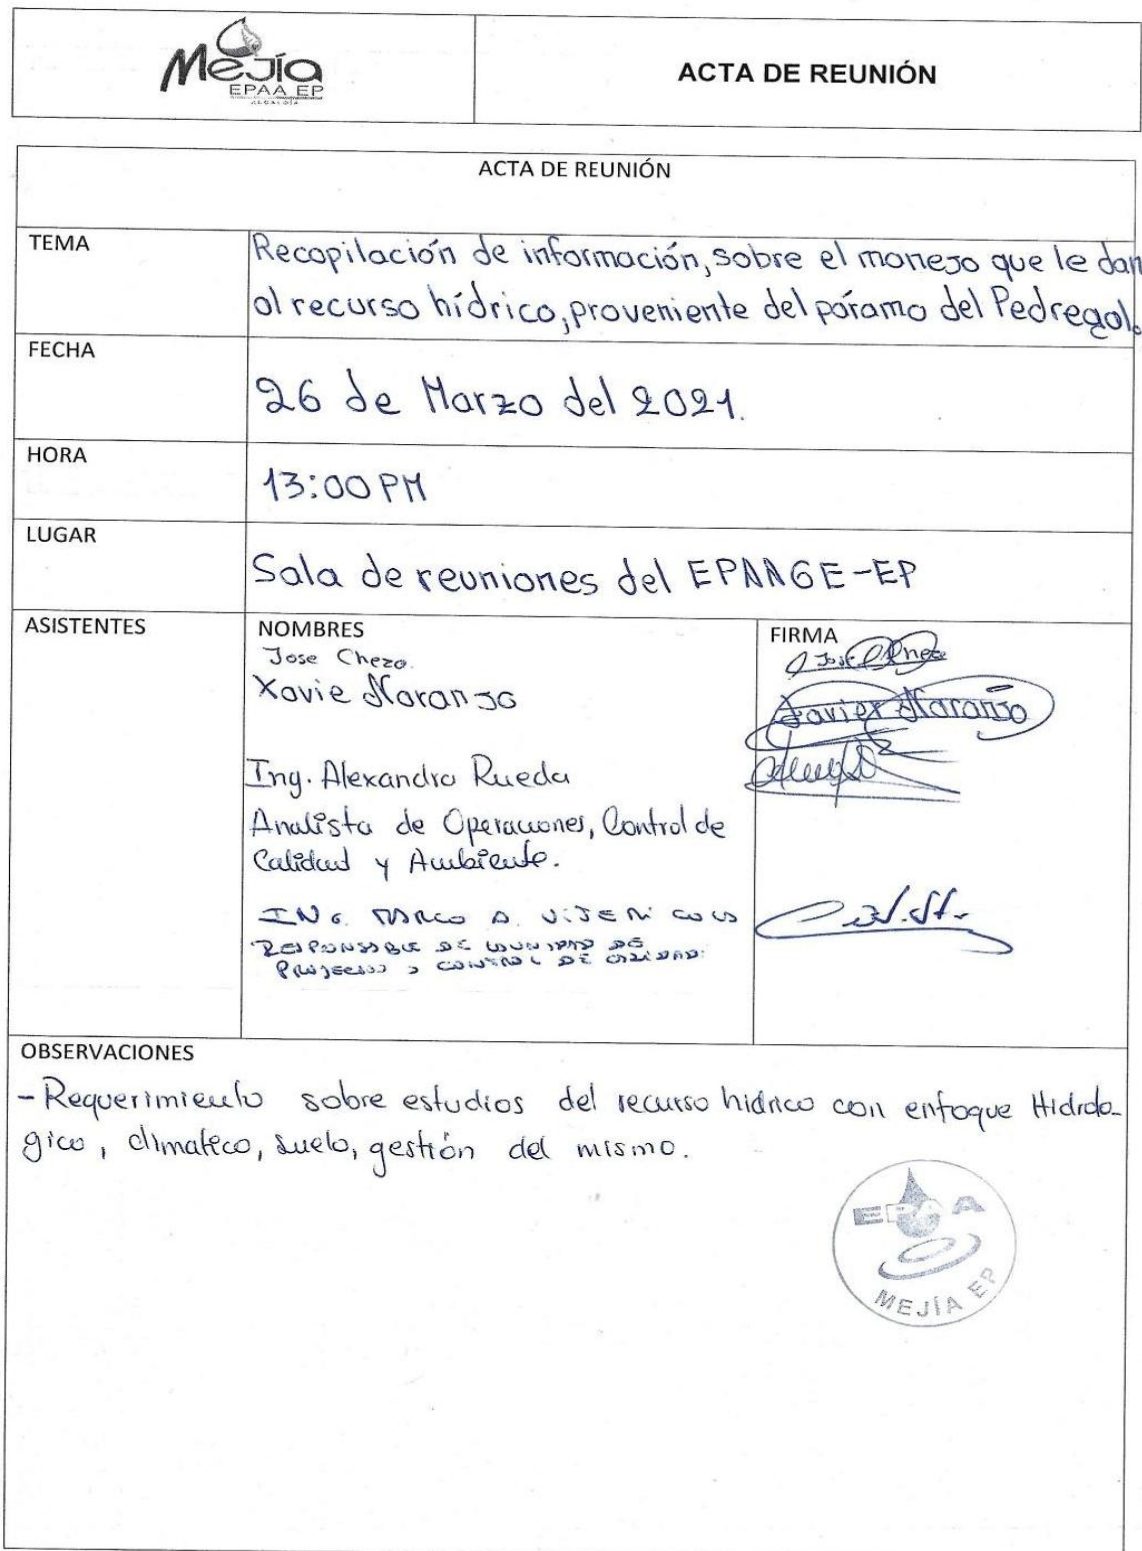 Mejía
EPAA EP
ALCALDÍA
ACTA DE REUNIÓN
ACTA DE REUNIÓN
TEMA
Recopilación de información, sobre el manejo que le dan
al recurso hídrico, proveniente del páramo del Pedregal.
FECHA
26 de Marzo del 2021.
HORA
13:00 PM
LUGAR
Sala de reuniones del EPAAGE-EP
ASISTENTES
NOMBRES
FIRMA
Jose Cheza
Jose Cheza
Xavie Naranjo
Xavier Naranjo
Ing. Alexandra Rueda
Analista de Operaciones, Control de
Calidad y Ambiente.
ING. MARCO A. VITERI
RESPONSABLE DE UNIDAD DE
PROYECTOS Y CONTROL DE CALIDAD.
OBSERVACIONES
- Requerimiento sobre estudios del recurso hidrico con enfoque Hidrolo-
gico, climatico, suelo, gestión del mismo.
EPAA
MEJÍA EP